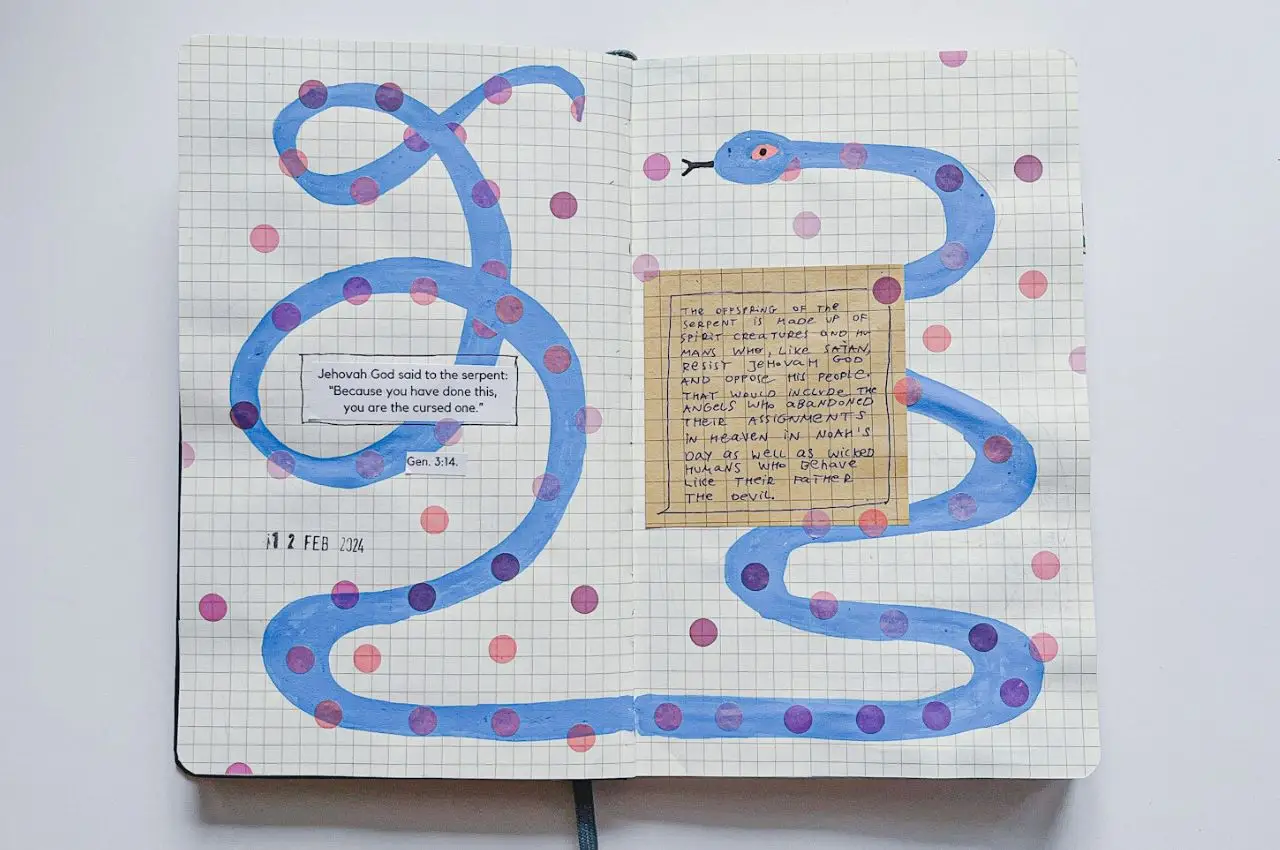 Jehovah God said to the serpent:
“Because you have done this,
you are the cursed one.”
Gen. 3:14.
12 FEB 2024
THE OFFSPRING OF THE
SERPENT IS MADE UP OF
SPIRIT CREATURES AND HU
MANS WHO, LIKE SATAN,
RESIST JEHOVAH GOD
AND OPPOSE HIS PEOPLE.
THAT WOULD INCLUDE THE
ANGELS WHO ABANDONED
THEIR ASSIGNMENTS
IN HEAVEN IN NOAH'S
DAY AS WELL AS WICKED
HUMANS WHO BEHAVE
LIKE THEIR FATHER
THE DEVIL.